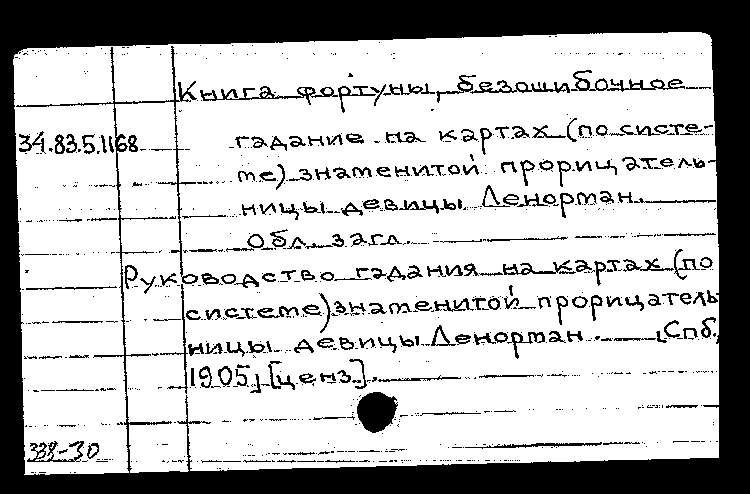 Книга фортуны, безошибочное
34.83.5.1168 гадание на картах (по систе-
ме) знаменитой прорицатель-
ницы девицы Ленорман.
Обл. загл.
Руководство гадания на картах (по
системе) знаменитой прорицатель
ницы девицы Ленорман. [Спб.,
1905] [ценз.].
338-30